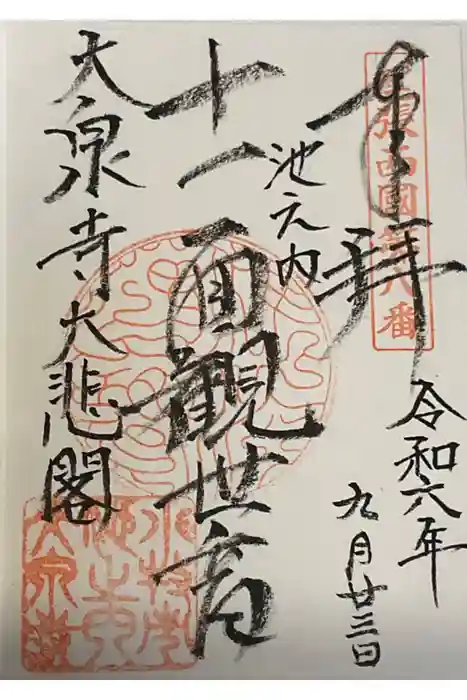 奉拝
尾張西國第八番
令和六年
九月廿三日
池之内
十一面觀世音
大泉寺大悲閣